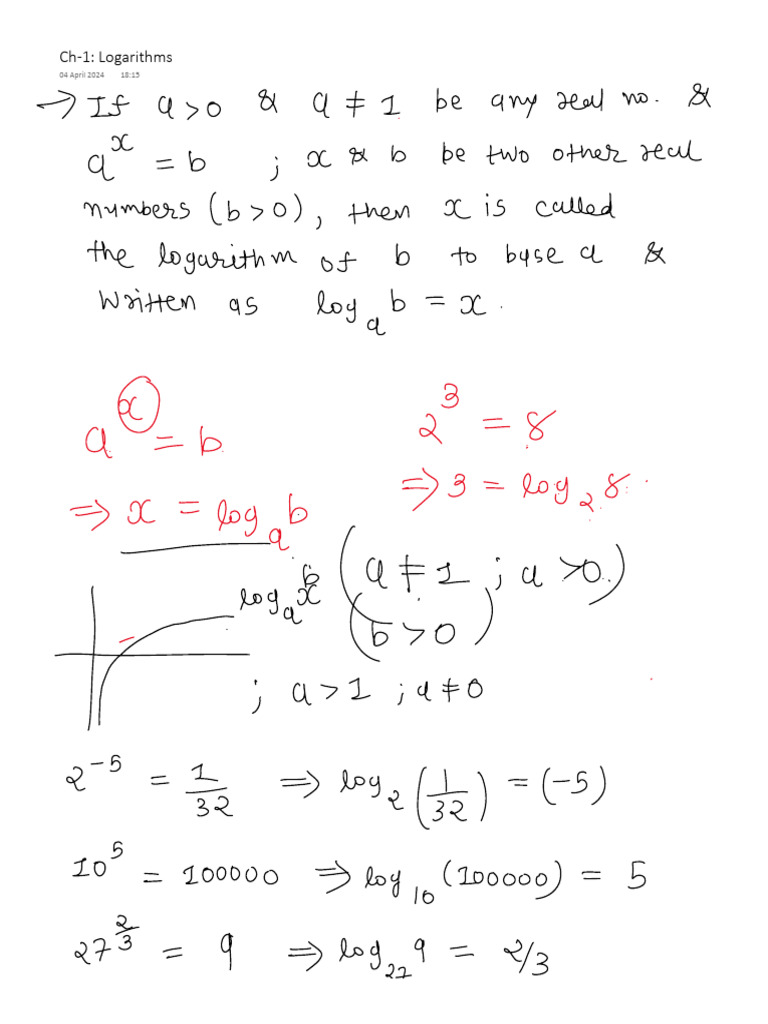 Ch-1: Logarithms
04 April 2024 18:15
→ If a>0 & a ≠ 1 be any real no. &
a^x = b ; x & b be two other real
numbers (b>0), then x is called
the logarithm of b to byse a &
written as log_a b = x.
a^x = b
2^3 = 8
⇒ x = log_a b
⇒ 3 = log_2 8.
(a ≠ 1 ; a >0)
(b>0)
; a>1 ; a≠0
2^-5 = 1/32 ⇒ log_2 (1/32) = (-5)
10^5 = 100000 ⇒ log_10 (100000) = 5
27^2/3 = 9 ⇒ log_27 9 = 2/3